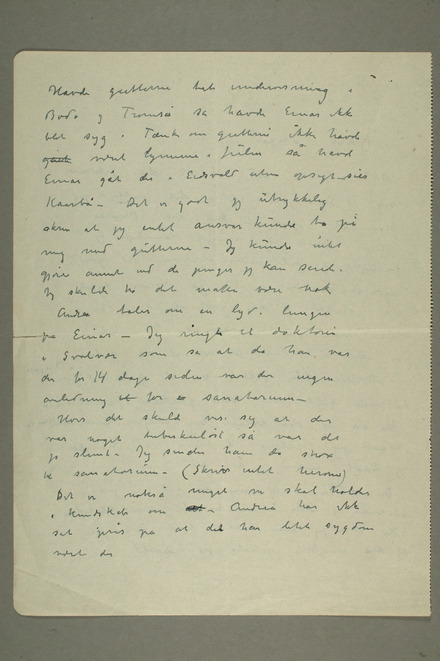 Havde gutterne tat undervisning i
Bodø og Tromsø så havde Einar ikke
blit syg. Tænk om gutterne ikke havde
været hjemme i Julen så havd
Einar gåt der i Eidsvold uten opsyn
Det er godt jeg utrykkelig
skrev at jeg intet ansvar kunde ta på
mig med gutterne – Jeg kunde intet
gjøre annet end de penger jeg kan sende.
Jeg skulde tro det måtte være nok
Andrea taler om en lyd i lungen
på Einar – Jeg ringte til doktoren
i Svolvær som sa at da han var
der for 14 dage siden var der ingen
anledning for sanatorium –
Hvis det skulde vise sig at der
var noget tuberkuløst så var det
jo slemt – Jeg sender ham da straks
til sanatorium – (Skriv intet herom)
Det er også meget vi skal holdes
i kundskab om – Andrea har ikke
sat pris på at det har blit sygdom